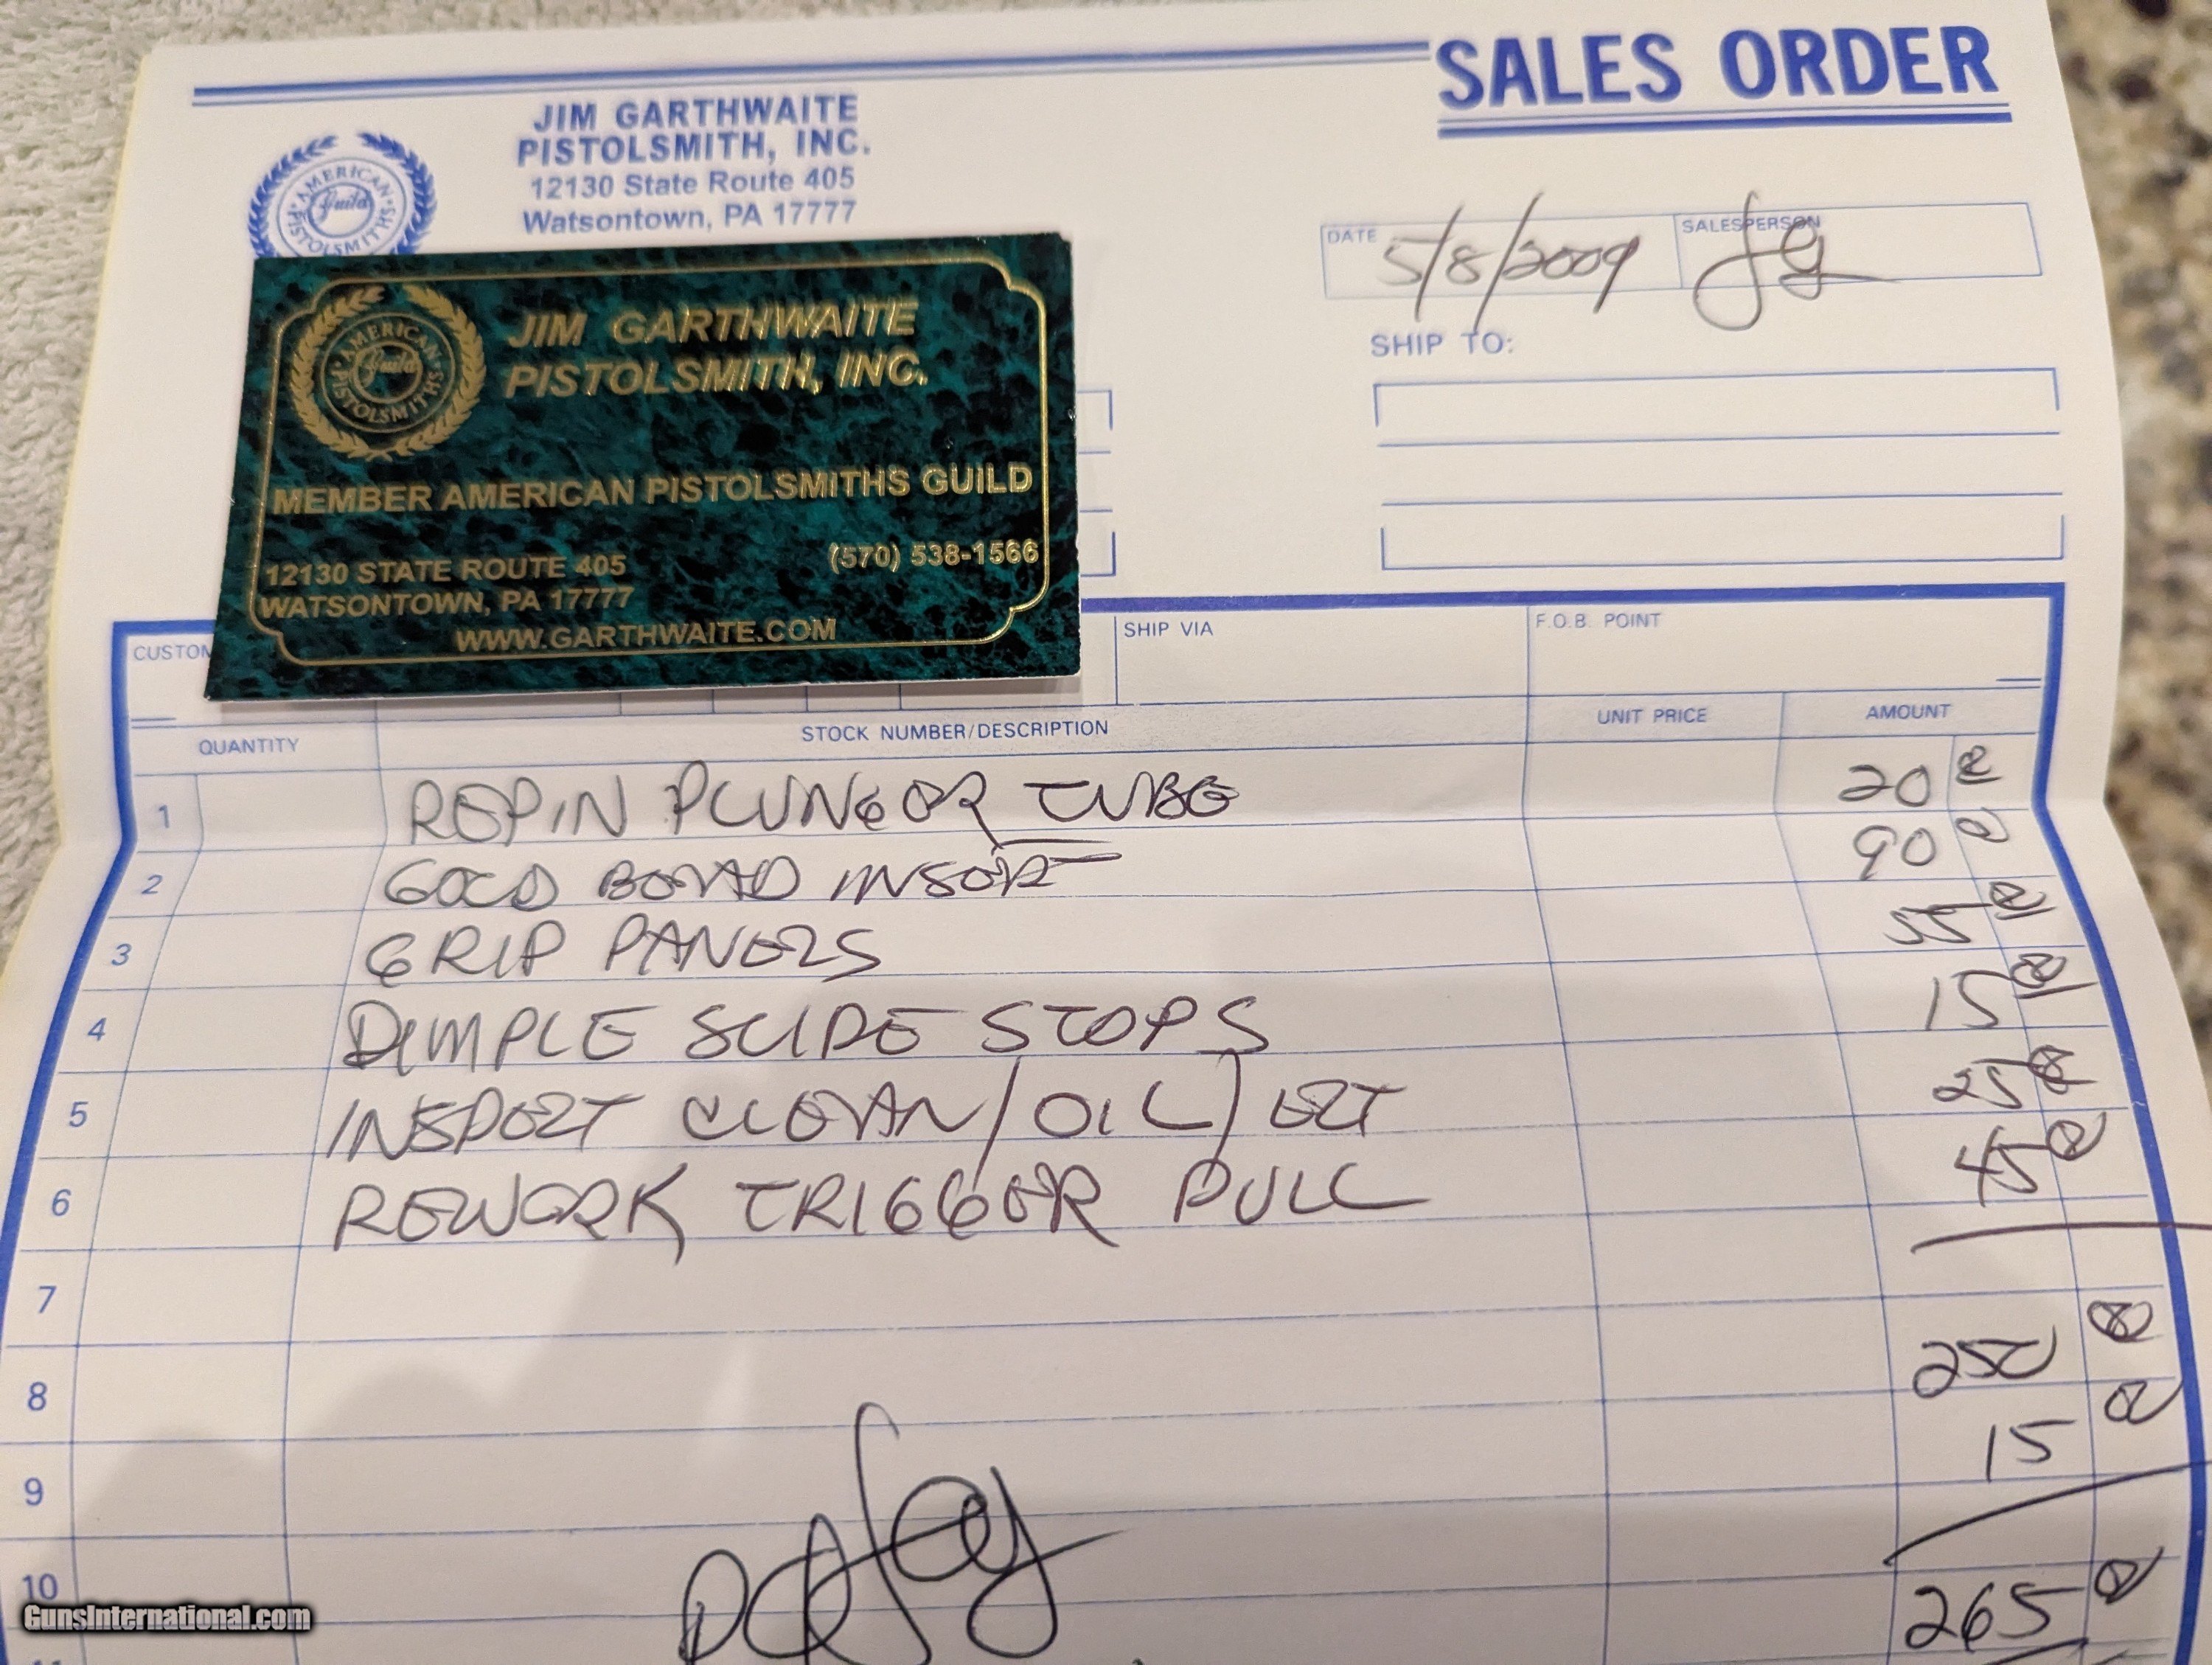 SALES ORDER
JIM GARTHWAITE
PISTOLSMITH, INC.
12130 State Route 405
Watsontown, PA 17777
AMERICAN
Guild
PISTOLSMITHS
DATE 5/8/2009
SALESPERSON jg
SHIP TO:
AMERICAN
Guild
PISTOLSMITHS
JIM GARTHWAITE
PISTOLSMITH, INC.
MEMBER AMERICAN PISTOLSMITHS GUILD
(570) 538-1566
12130 STATE ROUTE 405
WATSONTOWN, PA 17777
WWW.GARTHWAITE.COM
CUSTOM
SHIP VIA
F.O.B. POINT
QUANTITY
STOCK NUMBER/DESCRIPTION
UNIT PRICE
AMOUNT
1 REPIN PLUNGER TUBE 20
2 GOLD BEAD INSERT 90
3 GRIP PANELS 55
4 DIMPLE SLIDE STOPS 15
5 INSPECT CLEAN/OIL/ECT 25
6 REWORK TRIGGER PULL 45
7
250
8
15
9
10
265
11
GunsInternational.com